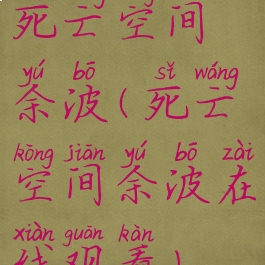 死亡空间
yú bō sǐ wáng
余波(死亡
kōng jiān yú bō zài
空间余波在
xiàn guān kàn
线观看)